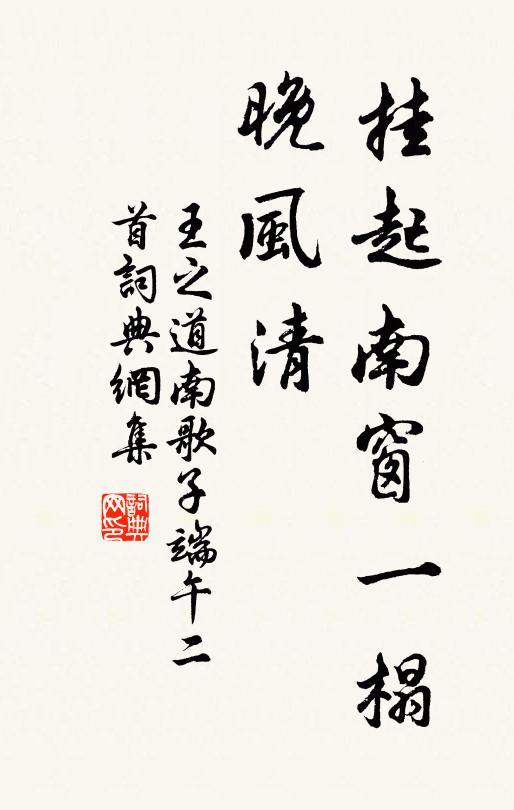 挂起南窗一榻
晚風清
王之道南歌子端午二
首詞典網集
詞典网印